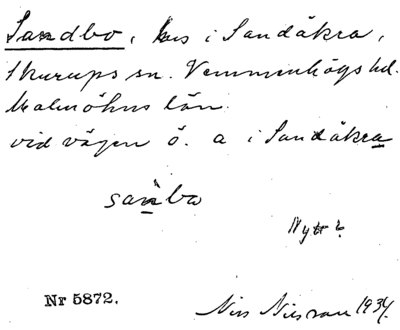 Sandbo, hus i Sandåkra,
Skurups sn. Vemmenhögs hd.
Malmöhus län.
vid vägen ö. a i Sandåkra
sanbo
Nytt?
Nr 5872.
Nils Nilsson 1934.